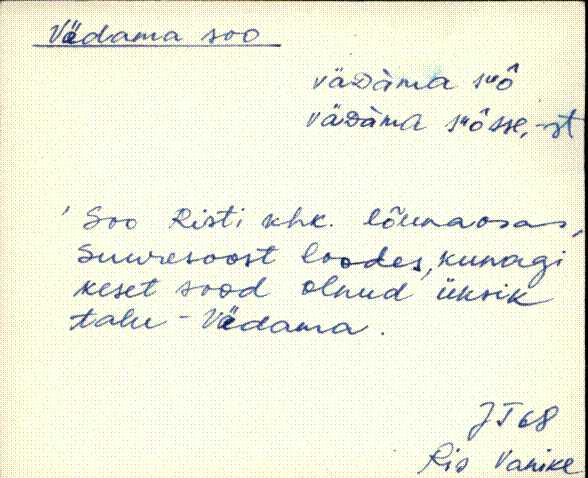 Vädama soo
väDàma suô
väDàma suôsse, -st
'Soo Risti khk. lõunaosas,
Suuresoost loodes, kunagi
keset sood olnud üksik
talu - Vädama.
JT 68
Ris Vanike